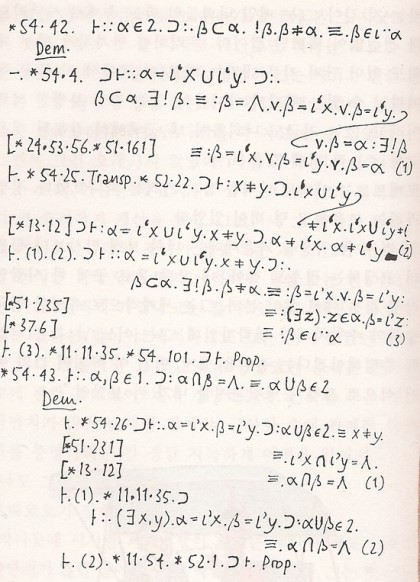 *54.42. ⊢::α∈2.⊃:.β⊂α.!β.β≠α.≡.β∈ι¨α
Dem.
⊢.*54.4.⊃⊢::α=ι‘x∪ι‘y.⊃:.
β⊂α.∃!β.≡:β=Λ.v.β=ι‘x.v.β=ι‘y.
v.β=α:∃!β
[*24.53.56.*51.161] ≡:β=ι‘x.v.β=ι‘y.v.β=α (1)
⊢.*54.25.Transp.*52.22.⊃⊢:x≠y.⊃.ι‘x∪ι‘y
≠ι‘x.ι‘x∪ι‘y≠ι
[*13.12]⊃⊢:α=ι‘x∪ι‘y.x≠y.⊃.α≠ι‘x.α≠ι‘y (2)
⊢.(1).(2).⊃⊢::α=ι‘x∪ι‘y.x≠y.⊃:.
β⊂α.∃!β.β≠α.≡:β=ι‘x.v.β=ι‘y:
[*51.235] ≡:(∃z).z∈α.β=ι‘z:
[*37.6] ≡:β∈ι¨α (3)
⊢.(3).*11.11.35.*54.101.⊃⊢.Prop.
*54.43.⊢:.α,β∈1.⊃:α∩β=Λ.≡.α∪β∈2
Dem.
⊢.*54.26.⊃⊢:.α=ι’x.β=ι’y.⊃:α∪β∈2.≡x≠y.
[*51.231] ≡.ι’x∩ι’y=Λ.
[*13.12] ≡.α∩β=Λ (1)
⊢.(1).*11.11.35.⊃
⊢:.(∃x,y).α=ι’x.β=ι’y.⊃:α∪β∈2.
≡.α∩β=Λ (2)
⊢.(2).*11.54.*52.1.⊃⊢.Prop.